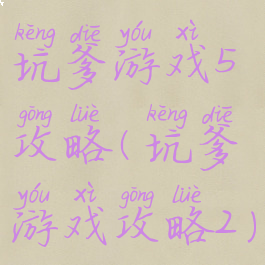 kēng diē yóu xì
坑爹游戏5
gōng lüè kēng diē
攻略(坑爹
yóu xì gōng lüè
游戏攻略2)